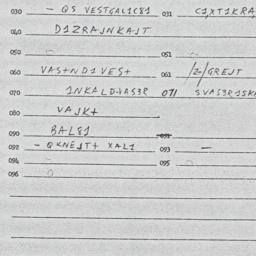 030 - QS VESTGAL1C81 031 C1,XT1KRA
040 D1ZRAJNKAJT
050 051
060 VAS+ND1VES+ 061 /Z/GREJT
070 1NKALD+AS3R 071 SVAS3R1SK
080 VAJK+
090 BAL81
092 - QKNEJT+ XAL1 093 -
094 095
096